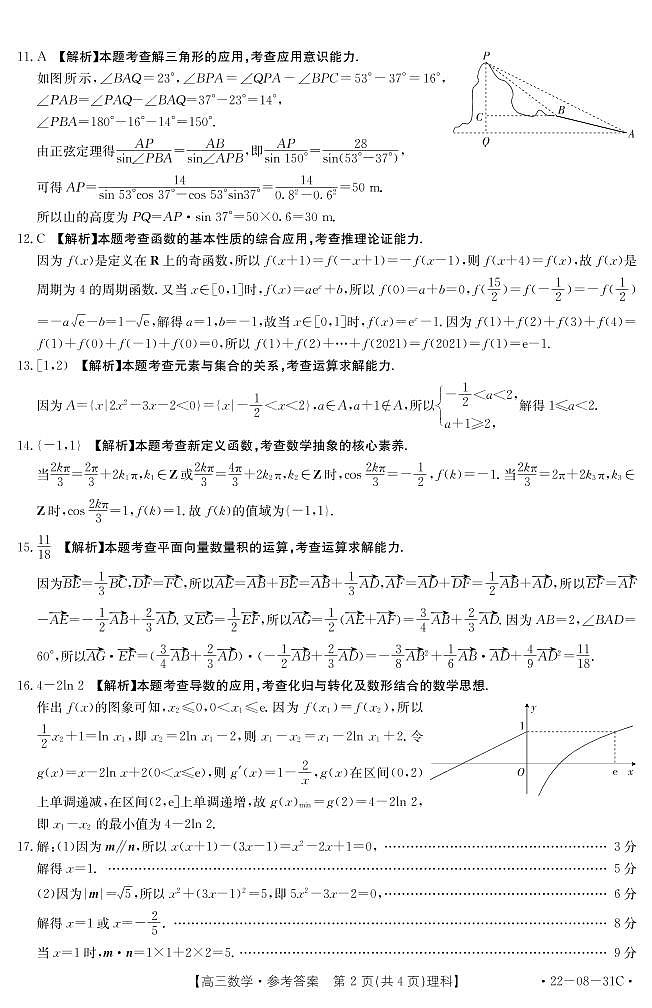 11. A 【解析】本题考查解三角形的应用,考查应用意识能力.
如图所示,∠BAQ=23°,∠BPA=∠QPA-∠BPC=53°-37°=16°,
∠PAB=∠PAQ-∠BAQ=37°-23°=14°,
∠PBA=180°-16°-14°=150°.
由正弦定理得AP/sin∠PBA=AB/sin∠APB,即AP/sin 150°=28/sin(53°-37°),
可得 AP=14/(sin 53°cos 37°-cos 53°sin37°)=14/(0.8²-0.6²)=50 m.
所以山的高度为 PQ=AP·sin 37°=50×0.6=30 m.
P
C
B
Q
A
12. C 【解析】本题考查函数的基本性质的综合应用,考查推理论证能力.
因为 f(x)是定义在 R 上的奇函数,所以 f(x+1)=f(-x+1)=-f(x-1),则 f(x+4)=f(x),故 f(x)是
周期为 4 的周期函数.又当 x∈[0,1]时,f(x)=aeˣ+b,所以 f(0)=a+b=0,f(15/2)=f(-1/2)=-f(1/2)
=-a√e-b=1-√e,解得 a=1,b=-1,故当 x∈[0,1]时,f(x)=eˣ-1.因为 f(1)+f(2)+f(3)+f(4)=
f(1)+f(0)+f(-1)+f(0)=0,所以 f(1)+f(2)+⋯+f(2021)=f(2021)=f(1)=e-1.
13. [1,2) 【解析】本题考查元素与集合的关系,考查运算求解能力.
因为 A={x|2x²-3x-2<0}={x|-1/2<x<2},a∈A,a+1∉A,所以{-1/2<a<2, a+1≥2, 解得 1≤a<2.
14. {-1,1} 【解析】本题考查新定义函数,考查数学抽象的核心素养.
当2kπ/3=2π/3+2k₁π,k₁∈Z或2kπ/3=4π/3+2k₂π,k₂∈Z时,cos 2kπ/3=-1/2,f(k)=-1.当2kπ/3=2π+2k₃π,k₃∈
Z时,cos 2kπ/3=1,f(k)=1.故 f(k)的值域为{-1,1}.
15. 11/18 【解析】本题考查平面向量数量积的运算,考查运算求解能力.
因为BE→=1/3BC→,DF→=FC→,所以AE→=AB→+BE→=AB→+1/3AD→,AF→=AD→+DF→=1/2AB→+AD→,所以EF→=AF→
-AE→=-1/2AB→+2/3AD→.又EG→=1/2EF→,所以AG→=1/2(AE→+AF→)=3/4AB→+2/3AD→.因为 AB=2,∠BAD=
60°,所以AG→·EF→=(3/4AB→+2/3AD→)·(-1/2AB→+2/3AD→)=-3/8AB→²+1/6AB→·AD→+4/9AD→²=11/18.
16. 4-2ln 2 【解析】本题考查导数的应用,考查化归与转化及数形结合的数学思想.
作出 f(x)的图象可知,x₂≤0,0<x₁≤e.因为 f(x₁)=f(x₂),所以
1/2x₂+1=ln x₁,即 x₂=2ln x₁-2,则 x₁-x₂=x₁-2ln x₁+2.令
g(x)=x-2ln x+2(0<x≤e),则 g′(x)=1-2/x,g(x)在区间(0,2)
上单调递减,在区间(2,e]上单调递增,故 g(x)min=g(2)=4-2ln 2,
即 x₁-x₂ 的最小值为 4-2ln 2.
y
1
O
e
x
17. 解:(1)因为 m∥n,所以 x(x+1)-(3x-1)=x²-2x+1=0, ⋯⋯ 3 分
解得 x=1. ⋯⋯ 5 分
(2)因为|m|=√5,所以 x²+(3x-1)²=5,即 5x²-3x-2=0, ⋯⋯ 6 分
解得 x=1 或 x=-2/5. ⋯⋯ 8 分
当 x=1 时,m·n=1×1+2×2=5. ⋯⋯ 9 分
【高三数学·参考答案 第 2 页(共 4 页)理科】
·22-08-31C·